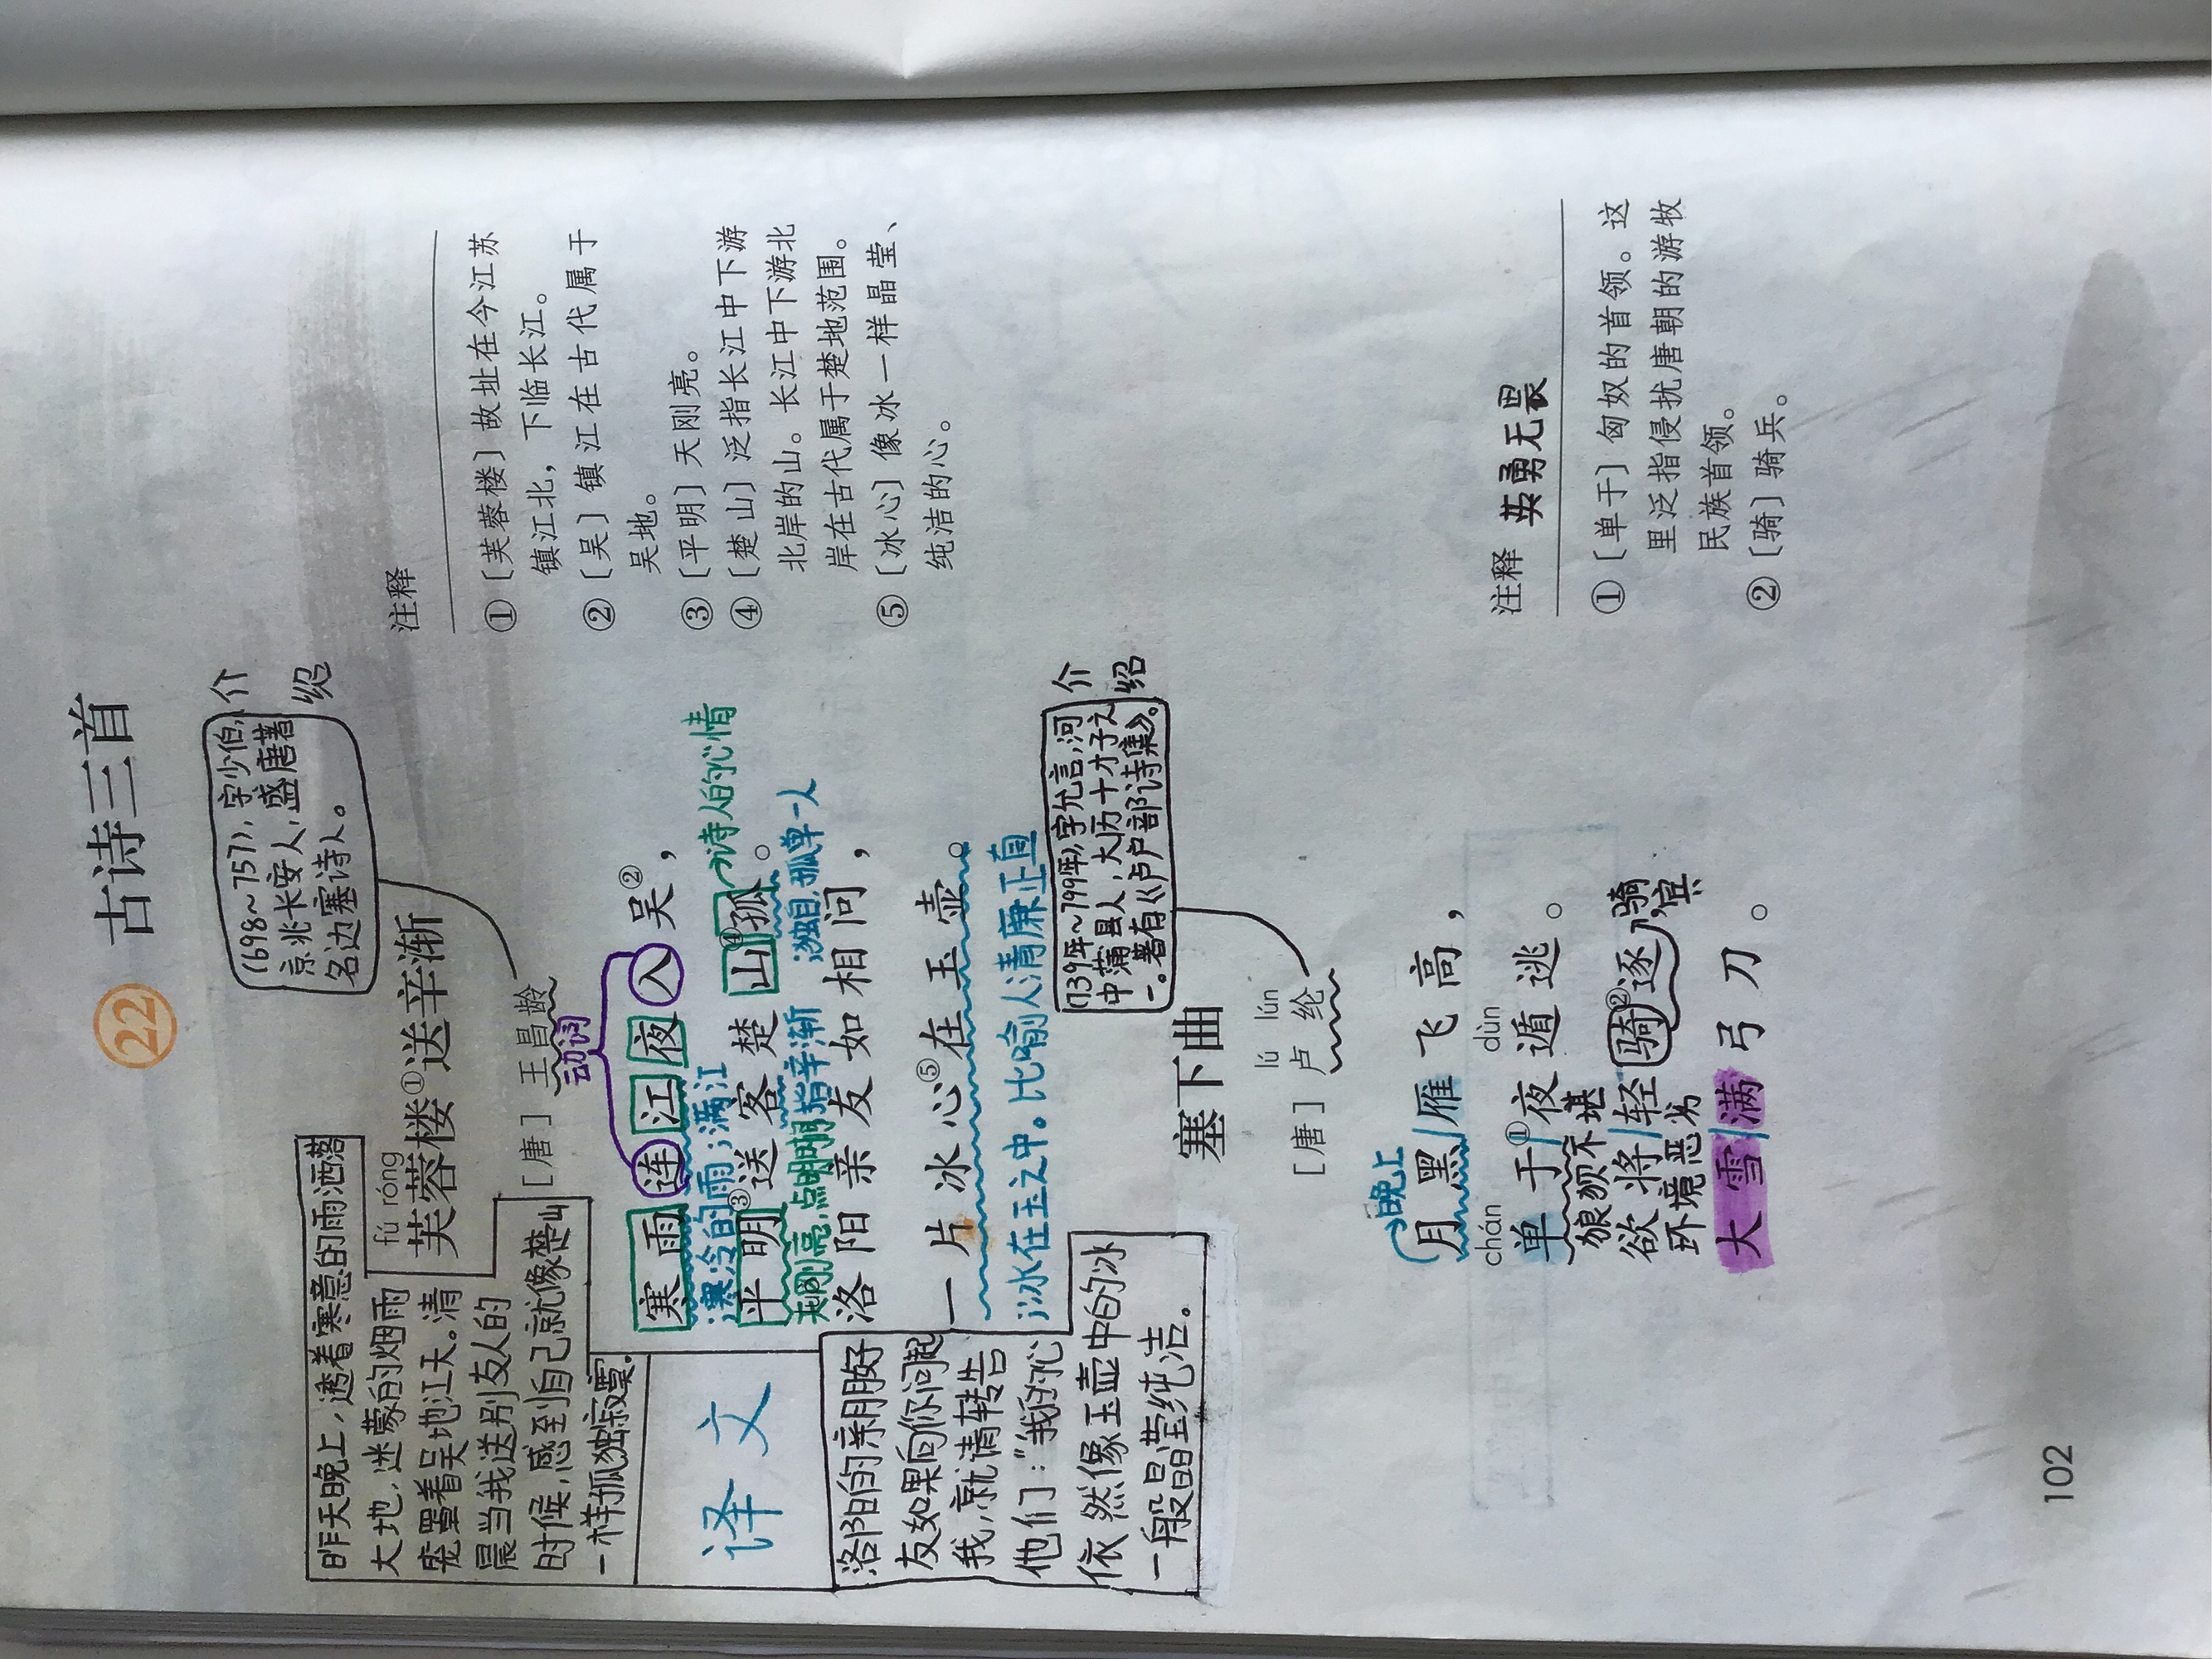 22 古诗三首
(698~757),字少伯,
京兆长安人,盛唐著
名边塞诗人。
介绍
fú róng
芙蓉楼①送辛渐
[唐] 王昌龄
动词
寒雨连江夜入吴②,
寒冷的雨;满江
平明③送客楚山④孤。
诗人的心情
天刚亮,点明
指辛渐
独自,孤单一人
洛阳亲友如相问,
一片冰心⑤在玉壶。
冰在玉之中。比喻人清廉正直
昨天晚上,透着寒意的雨洒落
大地,迷蒙的烟雨
笼罩着吴地江天。清
晨当我送别友人的
时候,感到自己就像楚山
一样孤独寂寞。
译文
洛阳的亲朋好
友如果向你问起
我,就请转告
他们:“我的心
依然像玉壶中的冰
一般晶莹纯洁.
注释
①[芙蓉楼]故址在今江苏
镇江北,下临长江。
②[吴]镇江在古代属于
吴地。
③[平明]天刚亮。
④[楚山]泛指长江中下游
北岸的山。长江中下游北
岸在古代属于楚地范围。
⑤[冰心]像冰一样晶莹、
纯洁的心。
(739年~799年),字允言,河
中蒲县人,大历十才子之
一。著有《卢户部诗集》。
介绍
塞下曲
lú lún
[唐] 卢纶
晚上
月黑雁飞高,
chán dùn
单于①夜遁逃。
狼狈不堪
欲将轻骑②逐,
骑兵
环境恶劣
大雪满弓刀。
注释 英勇无畏
①[单于]匈奴的首领。这
里泛指侵扰唐朝的游牧
民族首领。
②[骑]骑兵。
102